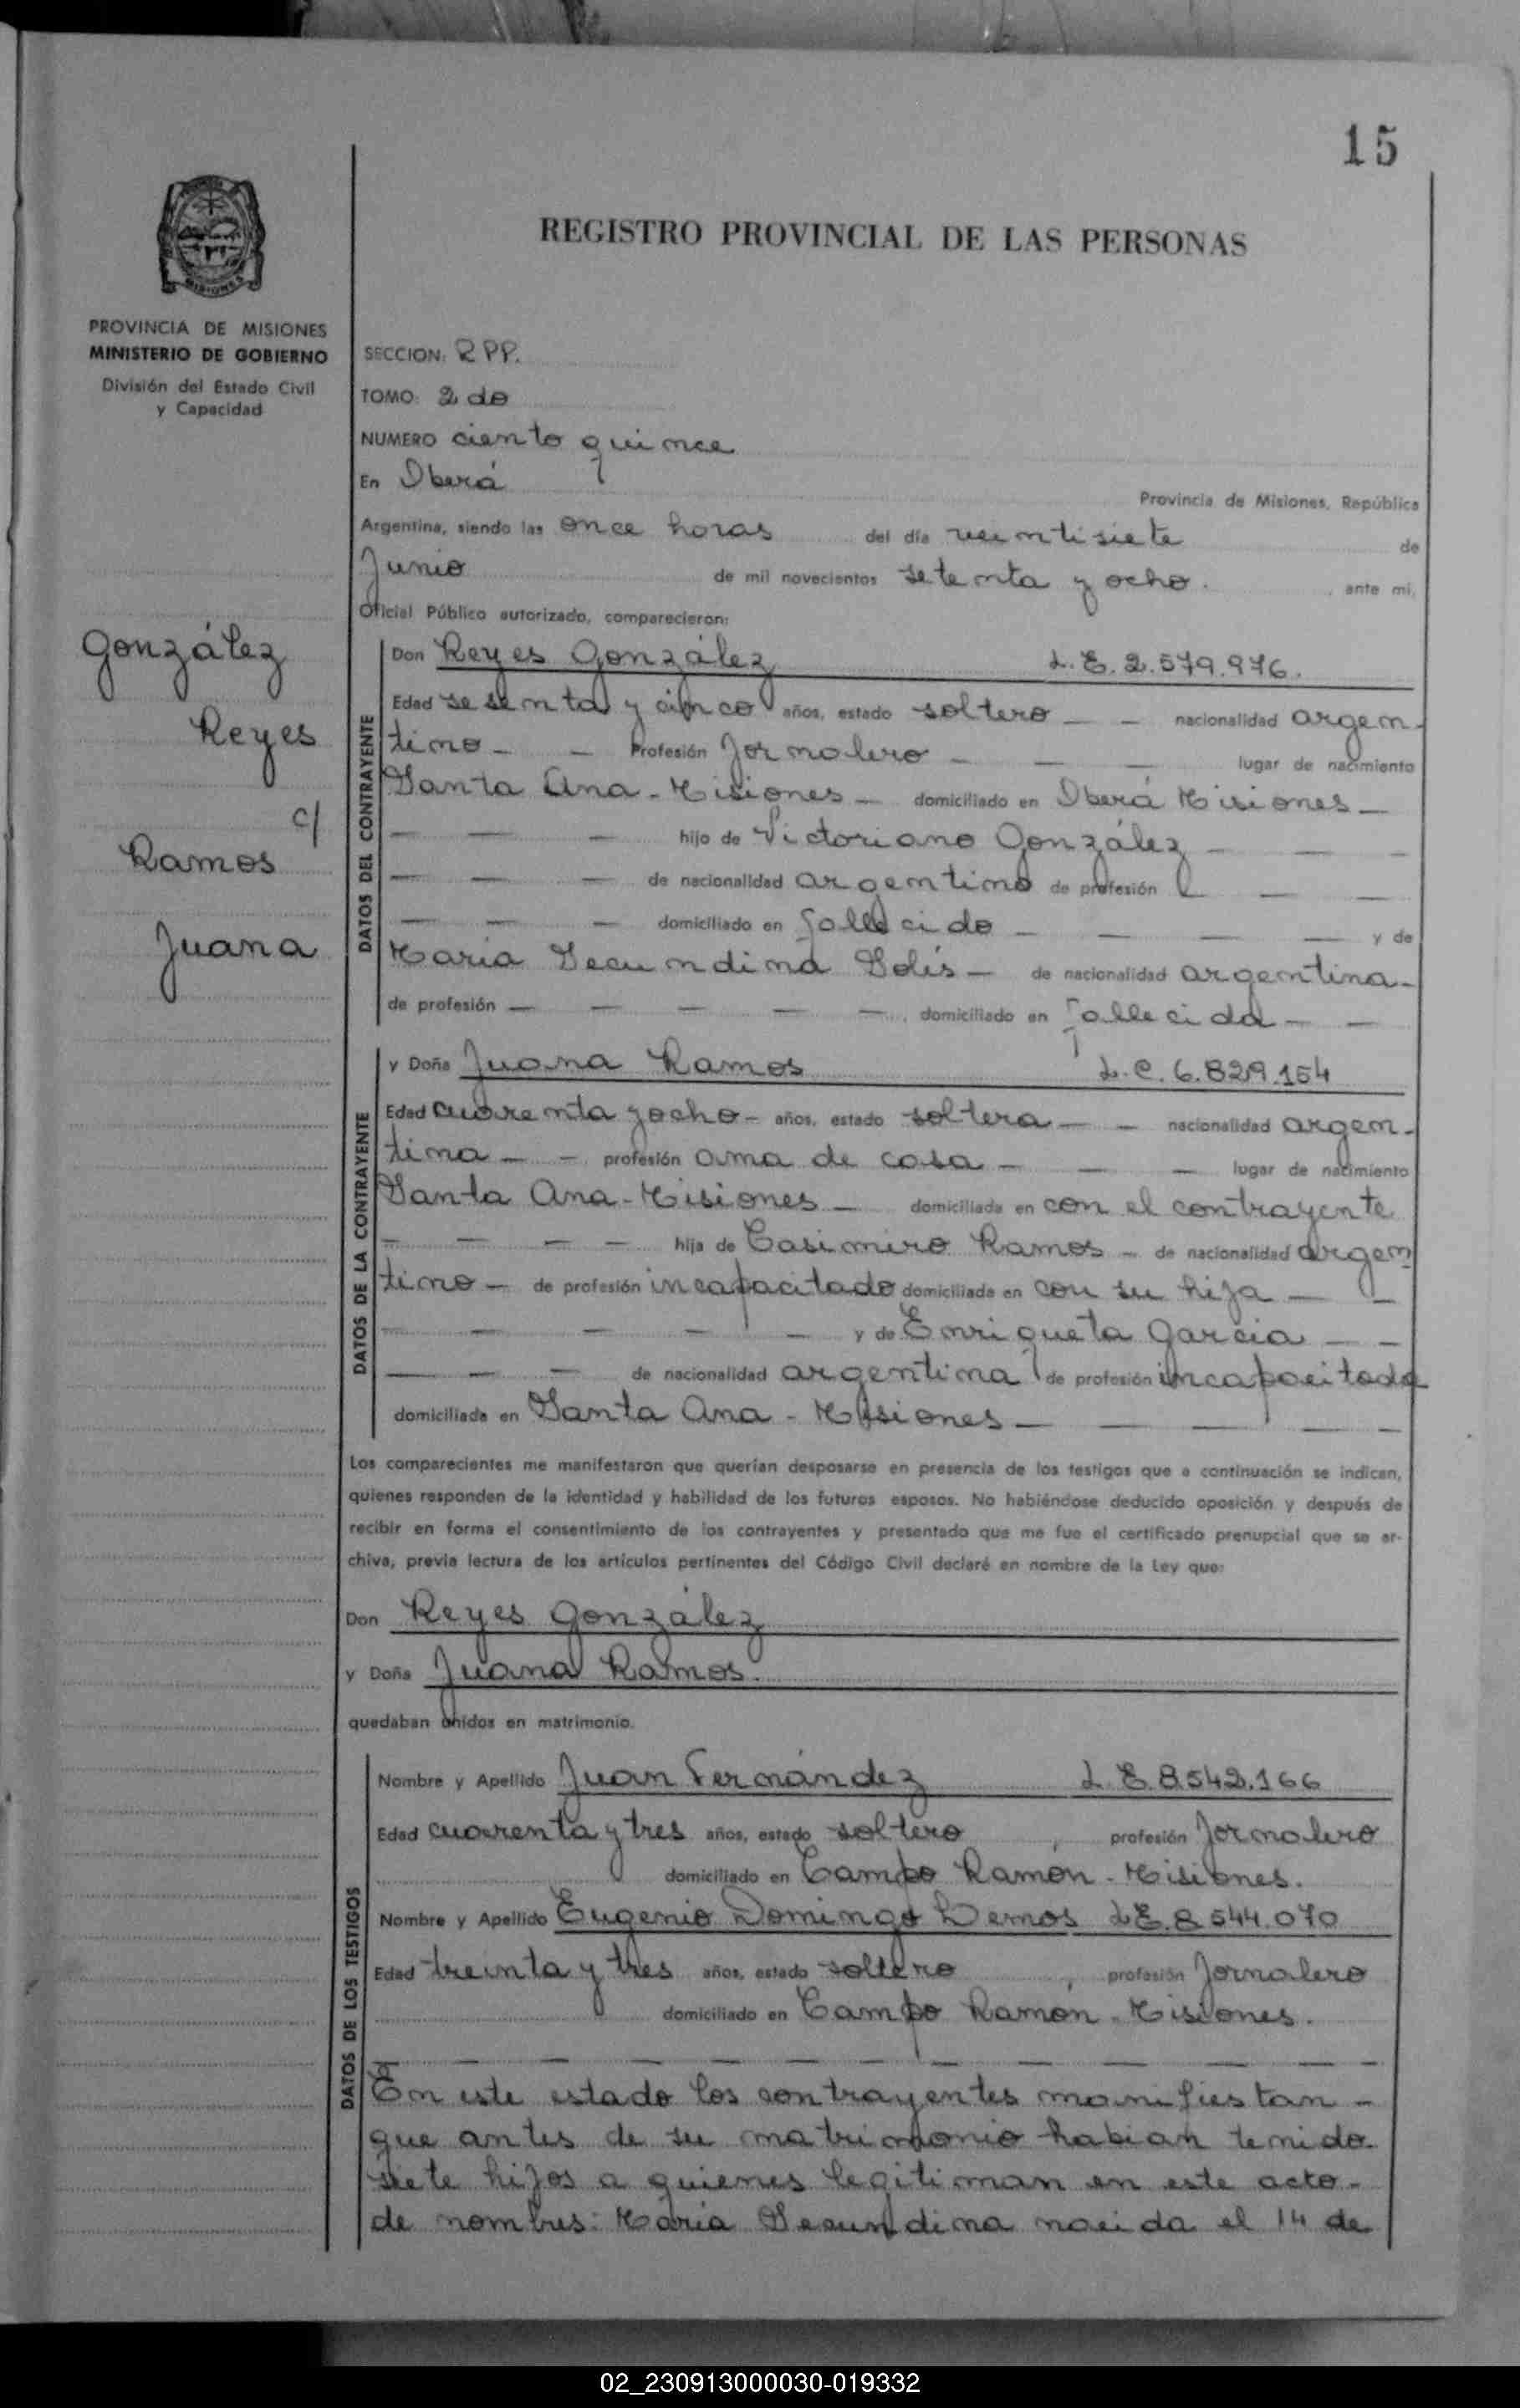 15
REGISTRO PROVINCIAL DE LAS PERSONAS
MISIONES
PROVINCIA DE MISIONES
MINISTERIO DE GOBIERNO
División del Estado Civil
y Capacidad
González
Reyes
c/
Ramos
Juana
SECCION: R P P.
TOMO: 2 do
NUMERO ciento quince
En Oberá
Provincia de Misiones, República
Argentina, siendo las once horas del día veintisiete de
Junio de mil novecientos setenta y ocho. ante mi,
Oficial Público autorizado, comparecieron:
DATOS DEL CONTRAYENTE
Don Reyes González L. E. 2.579.976.
Edad sesenta y cinco años, estado soltero — — nacionalidad argen-
tino — — Profesión Jornalero — — — lugar de nacimiento
Santa Ana - Misiones — domiciliado en Oberá Misiones —
— — — hijo de Victoriano González — — —
— — — de nacionalidad argentino de profesión — — —
— — — domiciliado en fallecido — — — — y de
María Secundina Solís — de nacionalidad argentina —
de profesión — — — — —, domiciliado en fallecida — —
DATOS DE LA CONTRAYENTE
y Doña Juana Ramos L. C. 6.829.154
Edad cuarenta y ocho — años, estado soltera — — nacionalidad argen-
tina — — profesión ama de casa — — — lugar de nacimiento
Santa Ana - Misiones — domiciliada en con el contrayente
— — — — hija de Casimiro Ramos — de nacionalidad argen
tino — de profesión incapacitado domiciliada en con su hija — —
— — — — — y de Enriqueta García — —
— — — de nacionalidad argentina de profesión incapacitada
domiciliada en Santa Ana - Misiones — — — —
Los comparecientes me manifestaron que querían desposarse en presencia de los testigos que a continuación se indican,
quienes responden de la identidad y habilidad de los futuros esposos. No habiéndose deducido oposición y después de
recibir en forma el consentimiento de los contrayentes y presentado que me fue el certificado prenupcial que se ar-
chiva, previa lectura de los artículos pertinentes del Código Civil declaré en nombre de la Ley que:
Don Reyes González
y Doña Juana Ramos.
quedaban unidos en matrimonio.
DATOS DE LOS TESTIGOS
Nombre y Apellido Juan Fernández L. E. 8.542.166
Edad cuarenta y tres años, estado soltero, profesión Jornalero
domiciliado en Campo Ramón - Misiones.
Nombre y Apellido Eugenio Domingo Lemos L.E. 8.544.070
Edad treinta y tres años, estado soltero, profesión Jornalero
domiciliado en Campo Ramón - Misiones.
— — — — — — — — — — — —
En este estado los contrayentes manifiestan -
que antes de su matrimonio habian tenido.
siete hijos a quienes legitiman en este acto -
de nombres: María Secundina nacida el 14 de
02_230913000030-019332